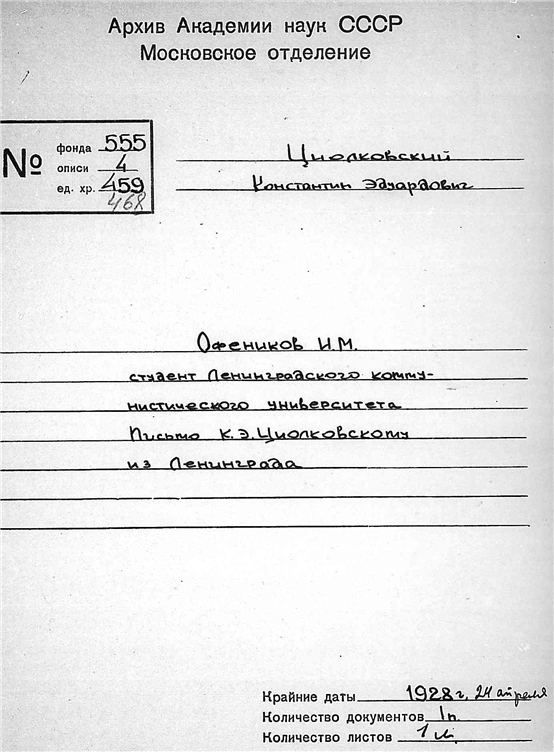 Архив Академии наук СССР
Московское отделение
№
фонда 555
описи 4
ед. хр. 459
468
Циолковский
Константин Эдуардович
Офеников И.М.
студент Ленинградского комму-
нистического университета
Письмо К.Э.Циолковскому
из Ленинграда
Крайние даты 1928 г, 24 апреля
Количество документов 1п.
Количество листов 1 л